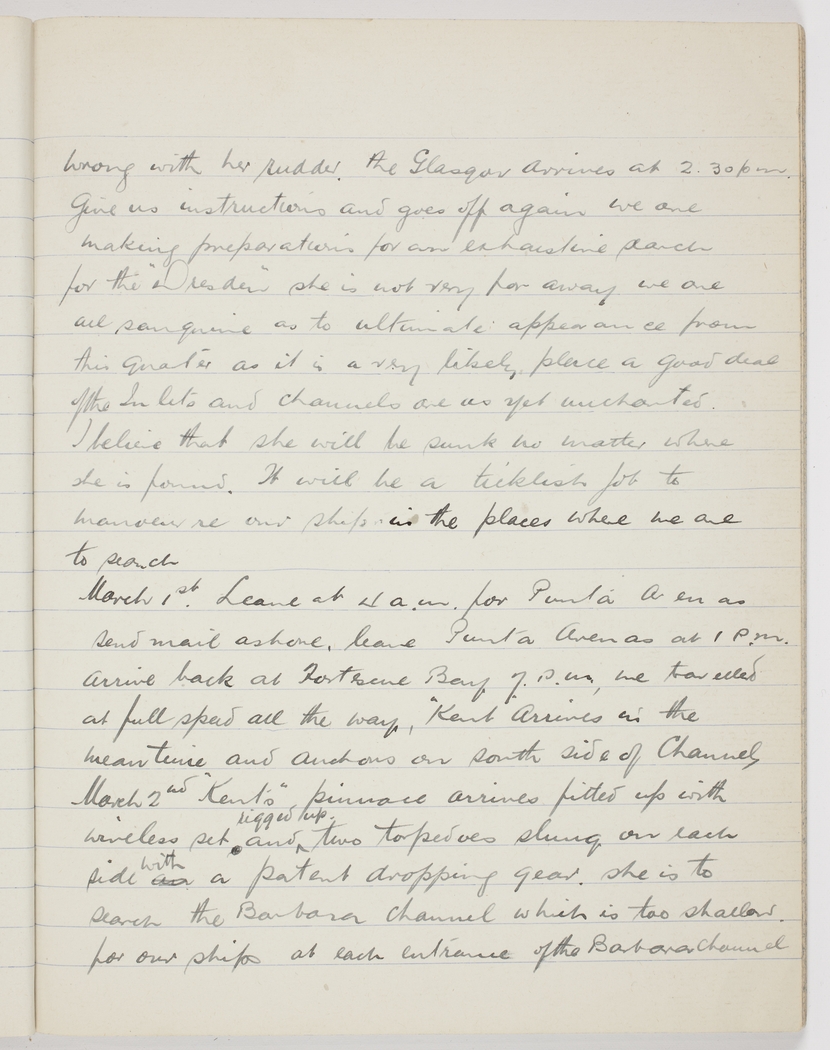 wrong with her rudder. The Glasgow arrives at 2.30 p.m.
Give us instructions and goes off again we are
making preparations for an exhaustive search
for the "Dresden" she is not very far away we are
all sanguine as to ultimate appearance from
this quater as it is a very likely place a good deal
of the Inlets and channels are as yet uncharted.
I believe that she will be sunk no matter where
she is found. It will be a ticklish job to
manoeuvre our ships in the places where we are
to search
March 1st. Leave at 4 a.m. for Punta Arenas
send mail ashore, leave Punta Arenas at 1 P.m.
arrive back at Fortescue Bay 7.P.m, we travelled
at full speed all the way, "Kent" Arrives in the
meantime and anchors on south side of Channel,
March 2nd "Kent's" pinnace arrives fitted up with
rigged up.
wireless set and two torpedoes slung on each
with
side as a patent dropping gear. she is to
search the Barbara Channel which is too shallow.
for our ships at each entrance of the Barbara Channel